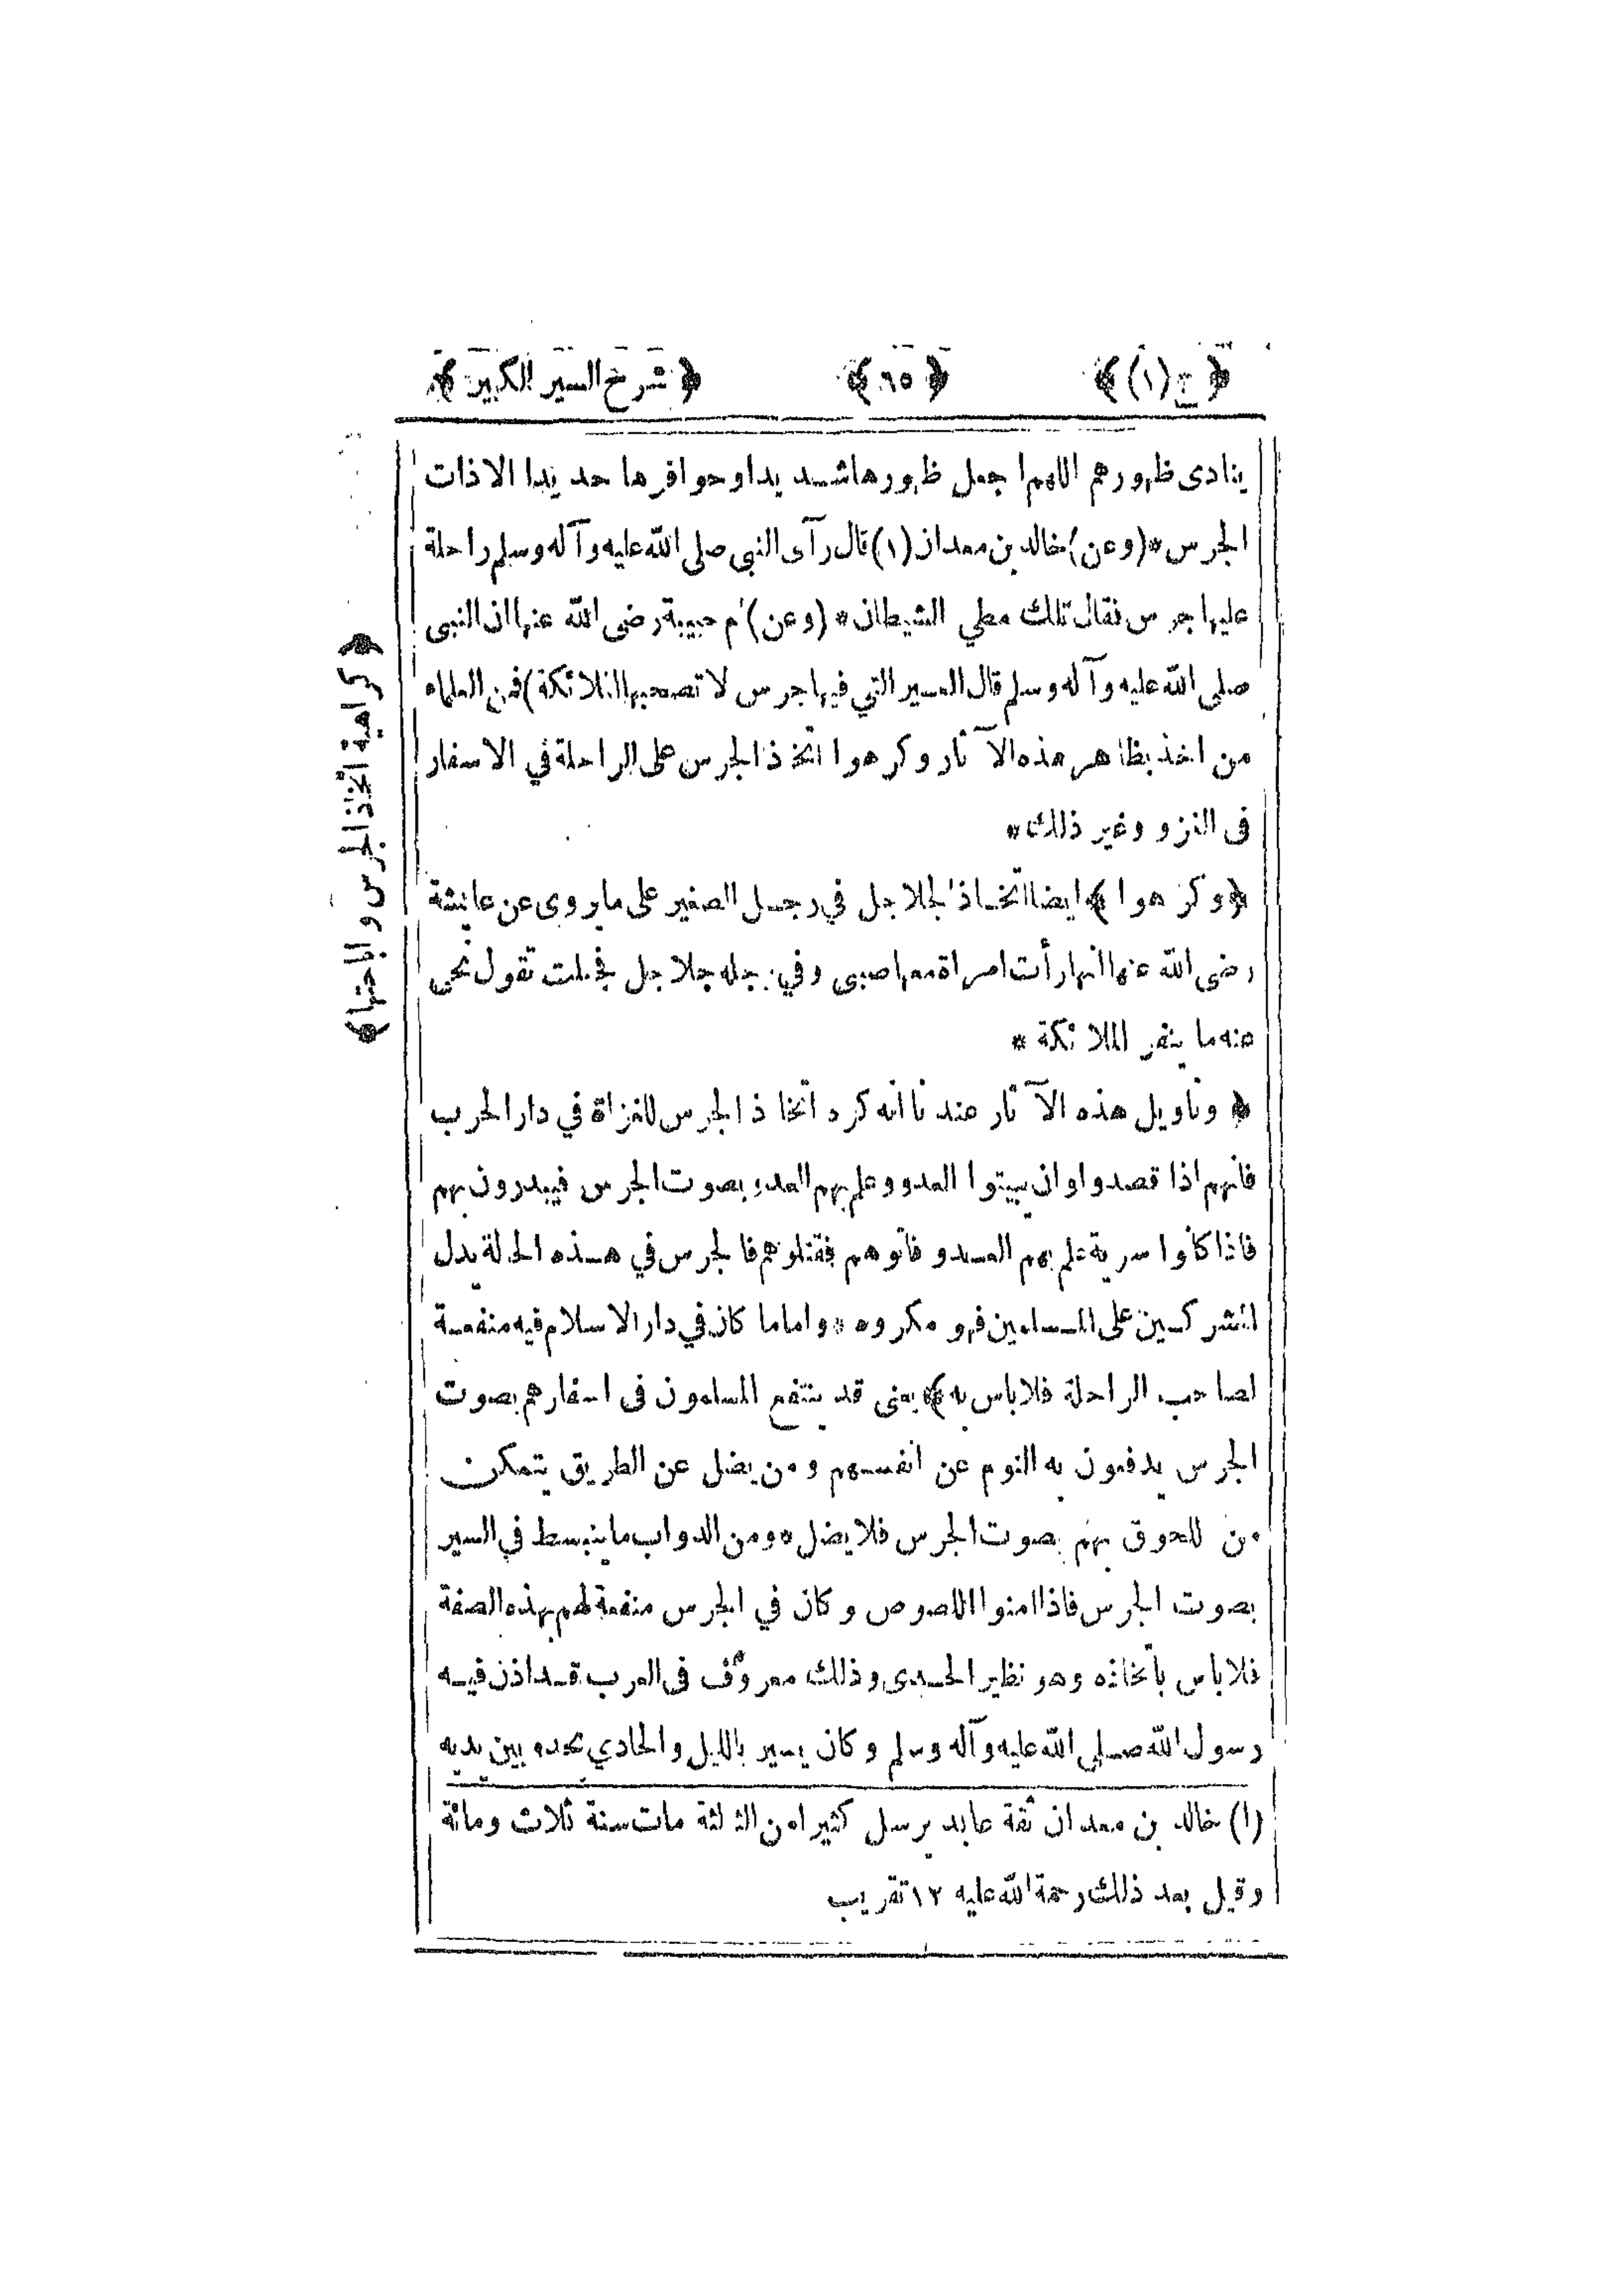 ﴿ شرح السير الكبير ﴾ ﴿ ٦٥ ﴾ ﴿ ج (١) ﴾
ينادى ظهورهم اللهم اجعل ظهورها شديدا وحوافرها حديدا الا ذات
الجرس * (وعن) خالد بن معدان (١) قال رآى النبي صلى الله عليه وآله وسلم راحلة
عليها جرس فقال تلك مطي الشيطان * (وعن) ام حبيبة رضى الله عنها ان النبى
صلى الله عليه وآله وسلم قال العير التي فيها جرس لا تصحبها الملائكة) فمن العلماء
من اخذ بظاهر هذه الآثار وكرهوا اتخاذ الجرس على الراحلة في الاسفار
فى الغزو وغير ذلك *
﴿ وكرهوا ﴾ ايضا اتخاذ الجلاجل في رجل الصغير على ما يروى عن عائشة
رضى الله عنها انها رأت امراة معها صبى وفي رجله جلاجل فجعلت تقول نحى
عنه ما ينفر الملائكة *
﴿ وتاويل هذه الآثار عندنا انه كره اتخاذ الجرس للغزاة في دار الحرب
فانهم اذا قصدوا ان يبيتوا العدو علم بهم العدو بصوت الجرس فيبدرون بهم
فاذا كانوا سرية علم بهم العدو فاتوهم فقتلوهم فالجرس في هذه الحالة يدل
المشركين على المسلمين فهو مكروه * واما ما كان في دار الاسلام فيه منفعة
لصاحب الراحلة فلا باس به ﴾ يعنى قد ينتفع المسلمون فى اسفارهم بصوت
الجرس يدفعون به النوم عن انفسهم ومن يضل عن الطريق يتمكن
من للحوق بهم بصوت الجرس فلا يضل * ومن الدواب ما ينبسط في السير
بصوت الجرس فاذا امنوا اللصوص وكان في الجرس منفعة لهم بهذه الصفة
فلا باس باتخاذه وهو نظير الحدى وذلك معروف فى العرب قد اذن فيه
رسول الله صلى الله عليه وآله وسلم وكان يسير بالليل والحادي يحدو بين يديه
(١) خالد بن معدان ثقة عابد يرسل كثيرا من الثالثة مات سنة ثلاث ومائة
وقيل بعد ذلك رحمة الله عليه ١٢ تقريب
﴿ كراهية اتخاذ الجرس واباحتها ﴾